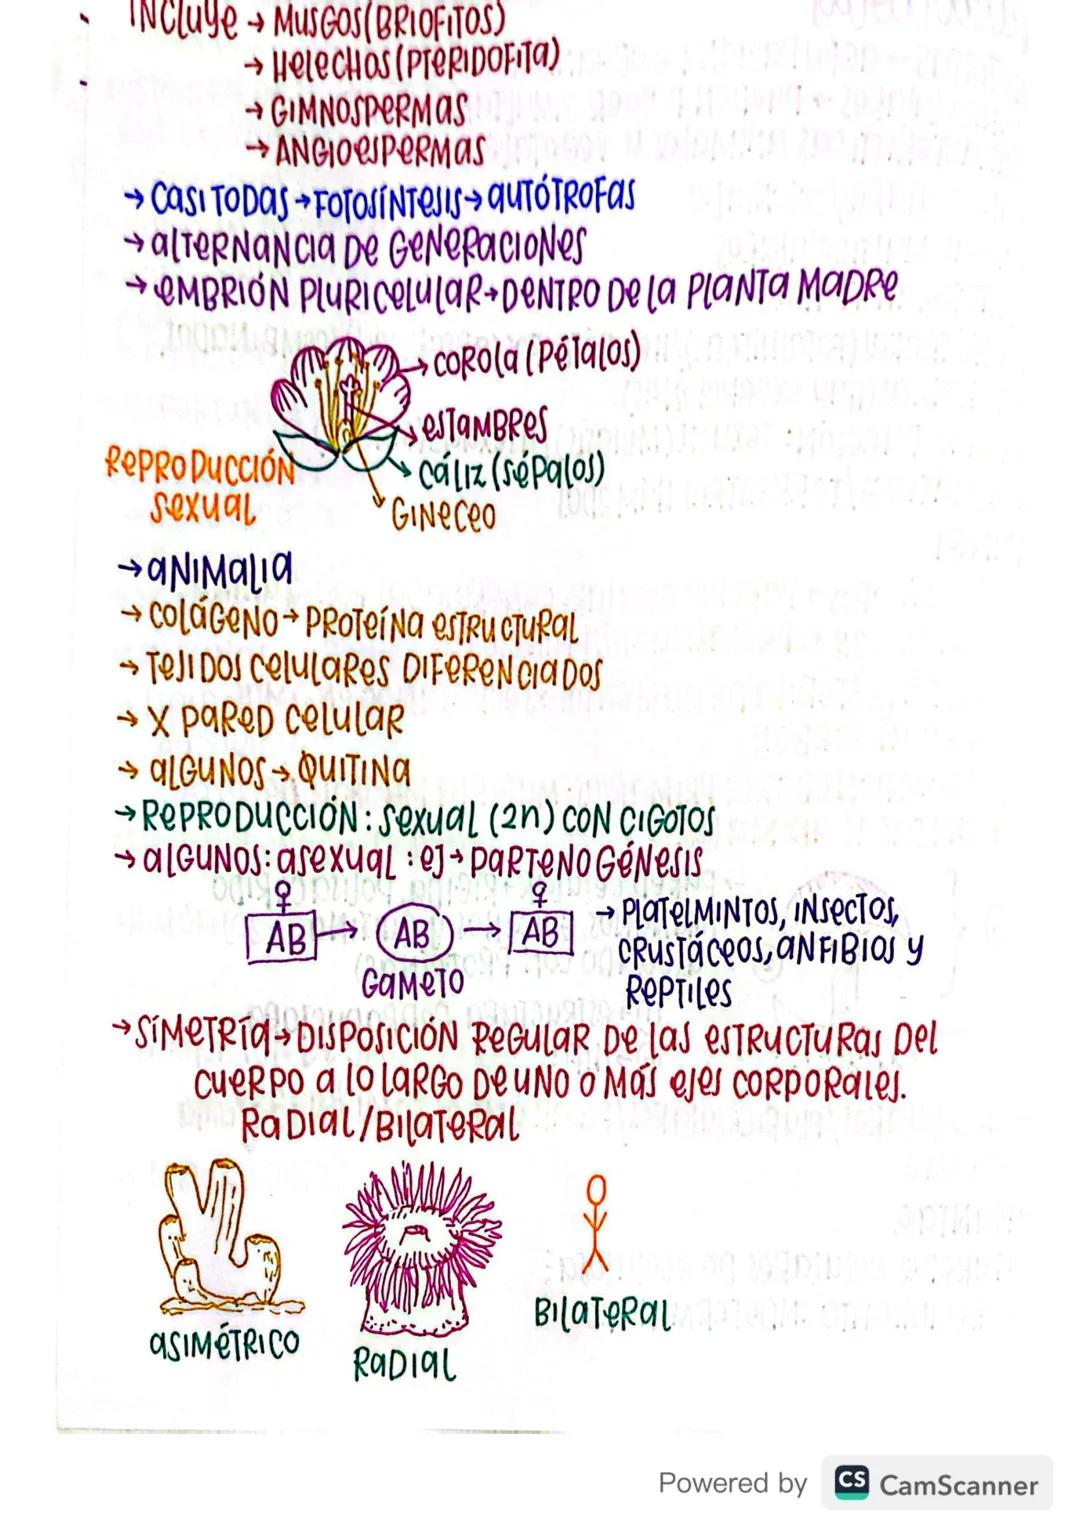 INCLUYE → MUSGOS (BRIOFITOS)
→ HELECHOS (PTERIDOFITA)
→ GIMNOSPERMAS
→ ANGIOESPERMAS
→ CASI TODAS → FOTOSÍNTESIS → AUTÓTROFAS
→ ALTERNANCIA DE GENERACIONES
→ EMBRIÓN PLURICELULAR → DENTRO DE LA PLANTA MADRE
→ COROLA (PÉTALOS)
→ ESTAMBRES
→ CÁLIZ (SÉPALOS)
GINECEO
REPRODUCCIÓN
SEXUAL
→ ANIMALIA
→ COLÁGENO → PROTEÍNA ESTRUCTURAL
→ TEJIDOS CELULARES DIFERENCIADOS
→ X PARED CELULAR
→ ALGUNOS → QUITINA
→ REPRODUCCIÓN: SEXUAL (2n) CON CIGOTOS
→ ALGUNOS: ASEXUAL : EJ → PARTENOGÉNESIS
♀ ♀
AB → AB → AB
GAMETO
→ PLATELMINTOS, INSECTOS,
CRUSTÁCEOS, ANFIBIOS Y
REPTILES
→ SÍMETRÍA → DISPOSICIÓN REGULAR DE LAS ESTRUCTURAS DEL
CUERPO A LO LARGO DE UNO O MÁS EJES CORPORALES.
RADIAL/BILATERAL
ASIMÉTRICO
RADIAL
BILATERAL
Powered by CS CamScanner